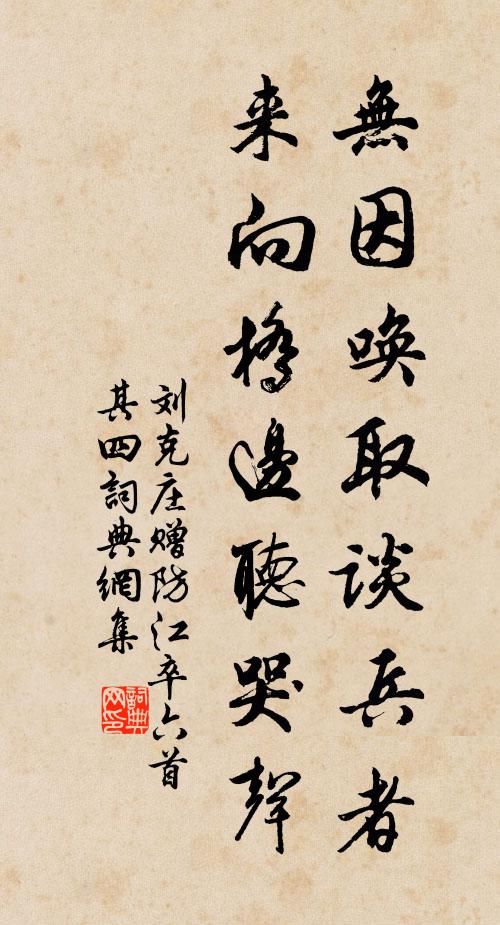 無因喚取談兵者
来向橋邊聽哭聲
刘克庄赠防江卒六首
其四詞典網集
詞典网印